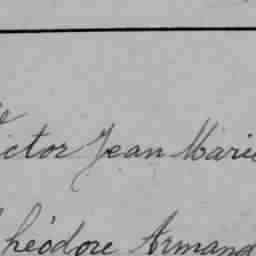 ictor Jean Marie
héodore Armand